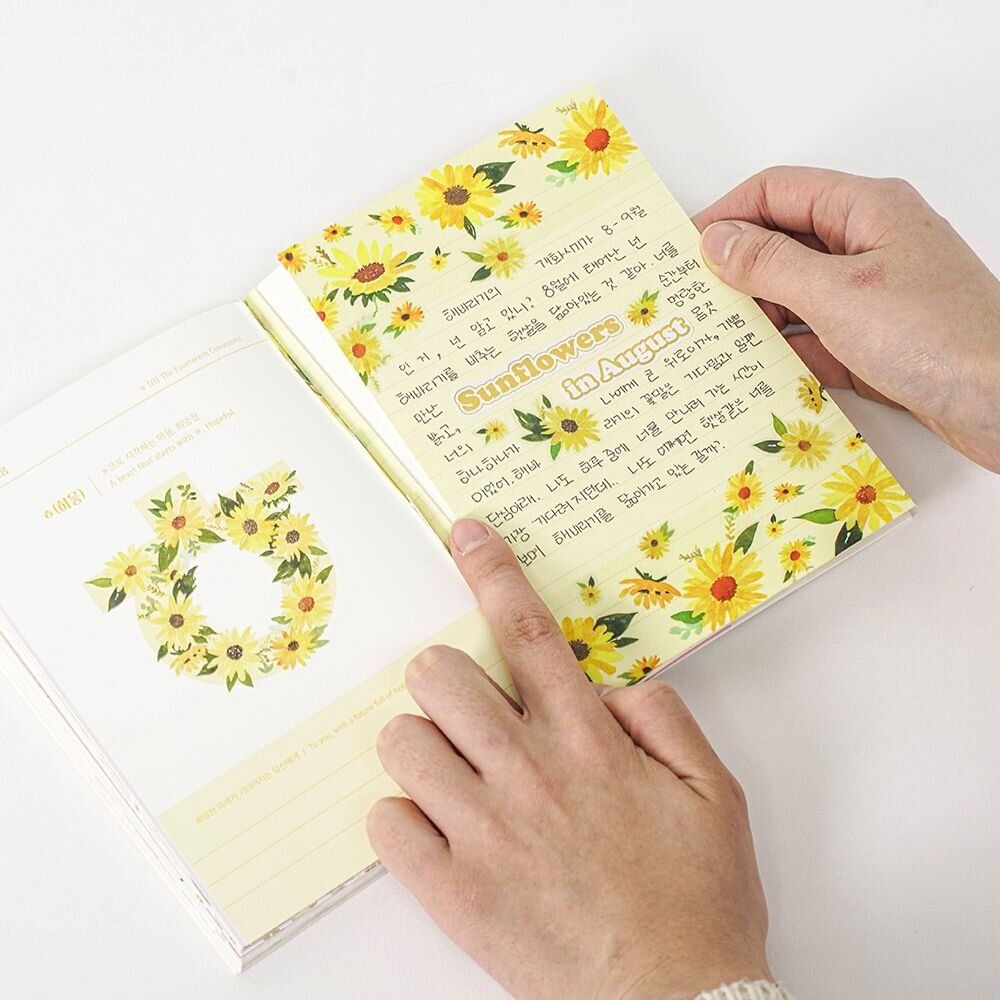 ㅎ [H] The Fourteenth Consonant
ㅎ으로 시작하는 마음, 희망참
A heart that starts with ㅎ, Hopeful
ㅎ(히읗)
희망찬 미래가 기다려지는 당신에게 / To you, with a future full of
해바라기의 개화시기가 8-9월
인 거, 넌 알고 있니? 8월에 태어난 넌
해바라기를 비추는 햇살을 닮아있는 것 같아. 너를
만난 순간부터
밝고, 명랑한
너의 몸짓
Sunflowers
in August
하나하나가 나에게 큰 위로이자, 기쁨
이었어. 해바라기의 꽃말은 기다림과 일편
단심이래. 나도 하루 중에 너를 만나러 가는 시간이
가장 기다려지던데.. 나도 어쩌면 햇살같은 너를
보며 해바라기를 닮아가고 있는 걸까?